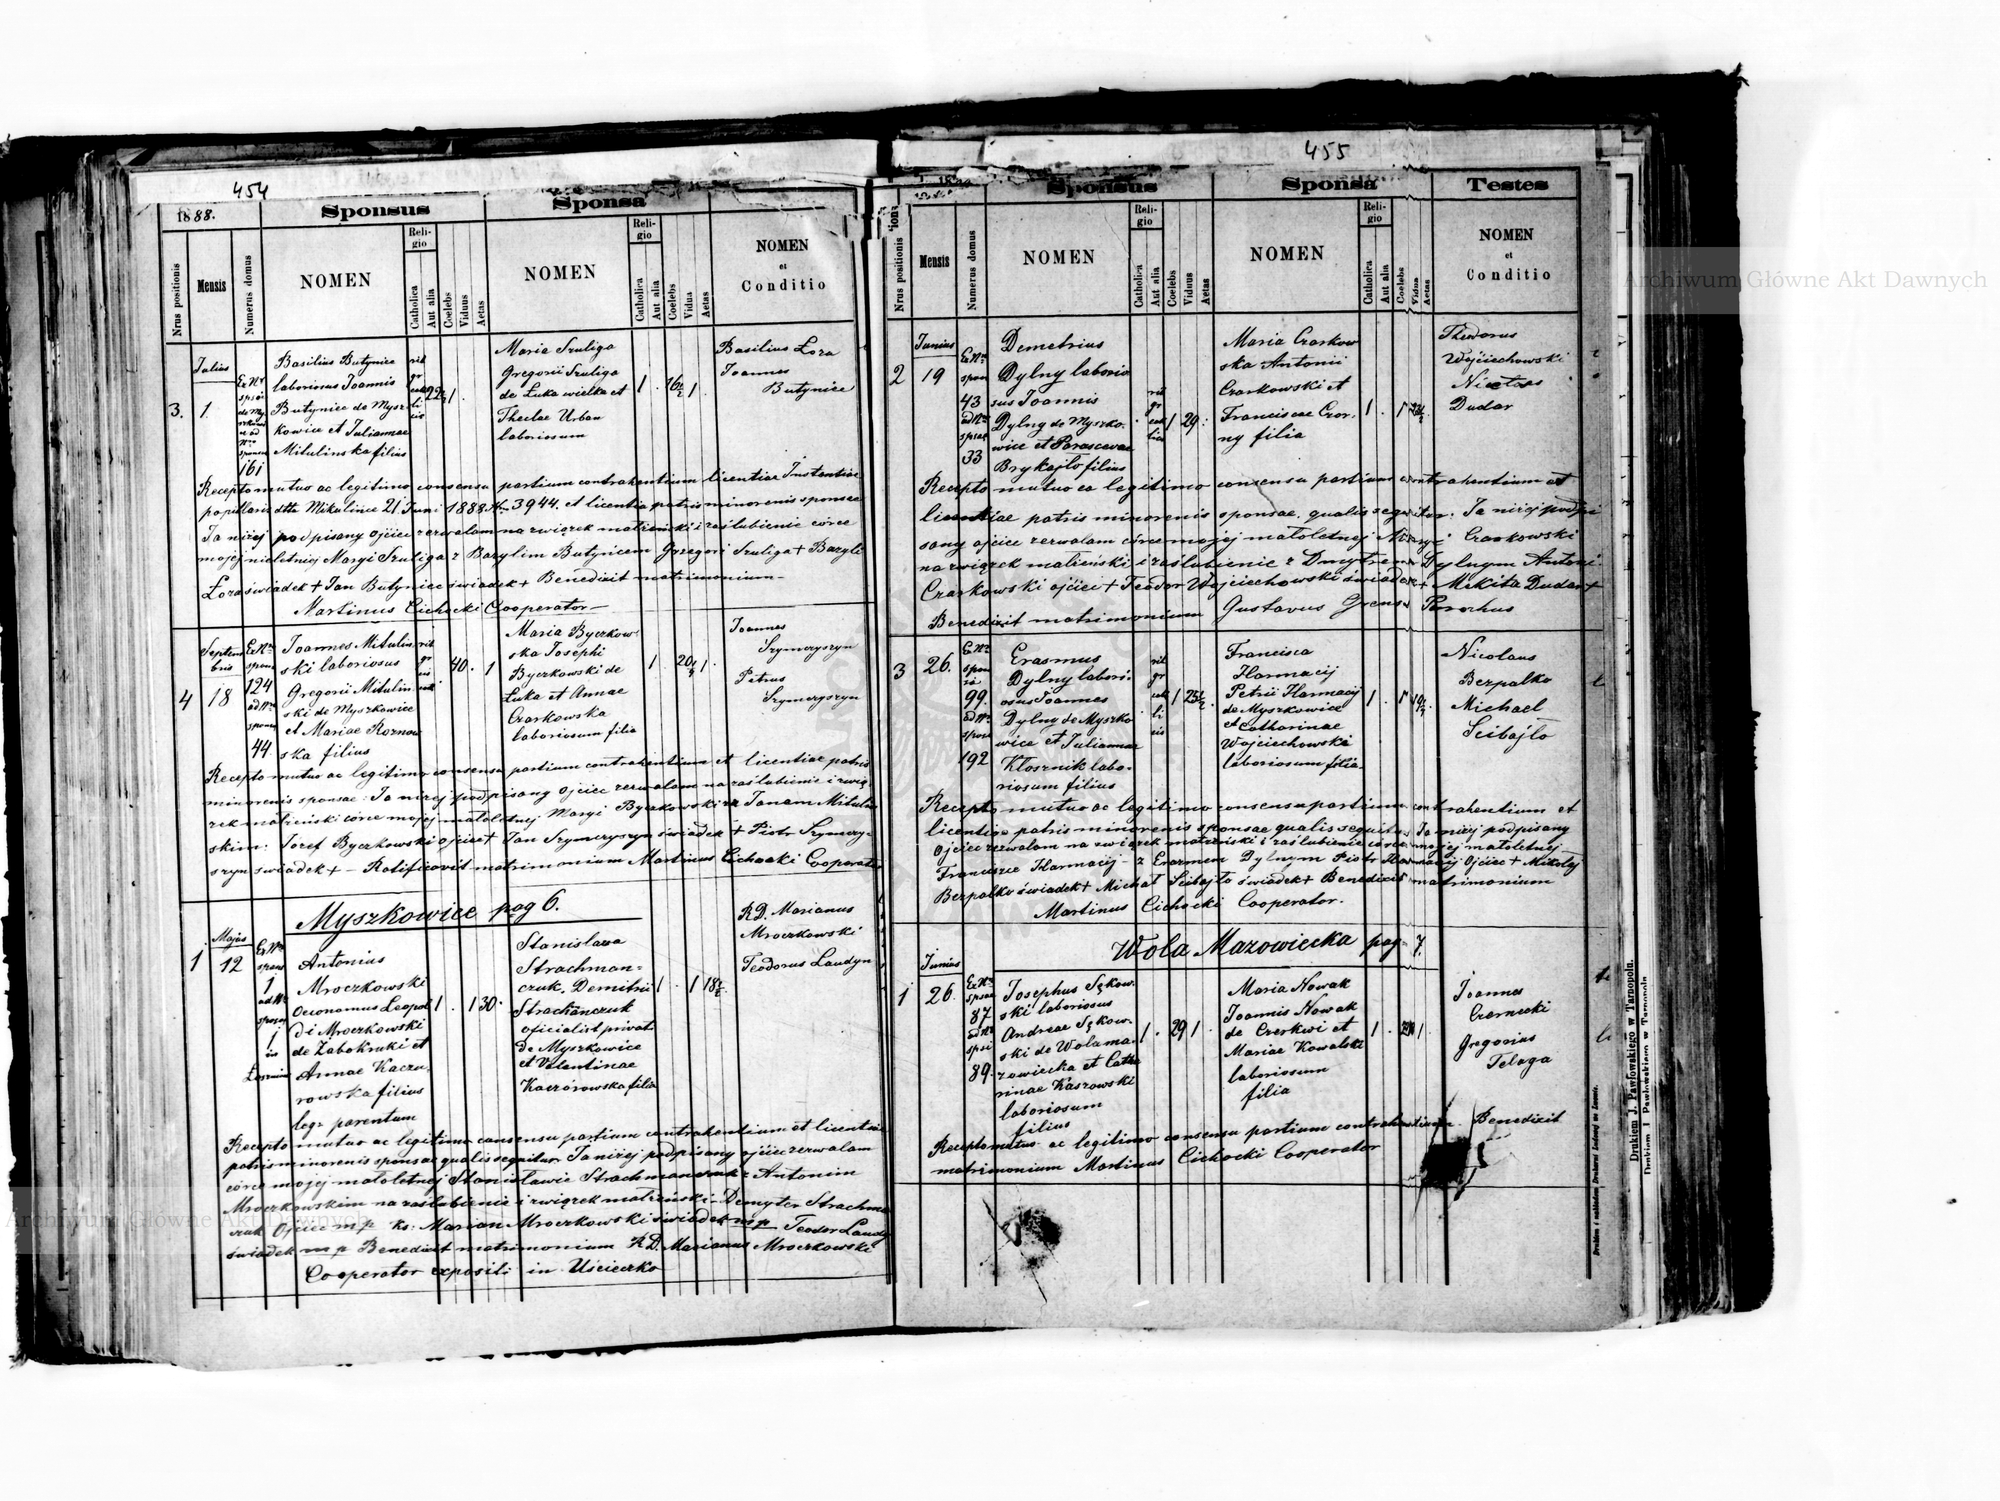 454
1888.
Sponsus
Sponsa
Nrus positionis
Mensis
Numerus domus
NOMEN
Religio
Catholica
Aut alia
Coelebs
Viduus
Aetas
NOMEN
Religio
Catholica
Aut alia
Coelebs
Vidua
Aetas
NOMEN
et
Conditio
Julius
3. 1.
161
Basilius Butynice
laboriosus Joannis
Butynice de Mysz
kowice et Juliannae
Mitulinska filius
Maria Szuliga
Gregorii Szuliga
de Łuka wielka et
Theclae Urban
laboriosum
Basilius Łoza
Joannes
Butynice
Recepto mutuo ac legitimo consensu partium contrahentium licentiae Instantiae
pupillaris dtto Mikulince 21 Juni 1888 Nro 3944. et licentia patris minorenis sponsae
Ja niżej podpisany ojciec zezwalam na związek małżeński i zaślubienie córce
mojej nieletniej Maryi Szuliga z Bazylim Butynicem Grzegorz Szuliga + Bazyli
Łoza świadek + Jan Butynice świadek + Benedixit matrimonium
Martinus Cichocki Cooperator
Septem
bris
4 18
124
44
Joannes Mitulin
ski laboriosus
Gregorii Mitulin
ski de Myszkowice
et Mariae Roznow
ska filius
40. 1
Maria Byczkow
ska Josephi
Byczkowski de
Łuka et Annae
Czarkowska
laboriosum filia
Joannes
Szymczyszyn
Petrus
Szymczyszyn
Recepto mutuo ac legitimo consensu partium contrahentium et licentiae patris
minorenis sponsae: Ja niżej podpisany ojciec zezwalam na zaślubienie i zwią
zek małżeński córce mojej małoletniej Maryi Byczkowski z Janem Mitulin
skim: Józef Byczkowski ojciec + Jan Szymczyszyn świadek + Piotr Szymczy
szyn świadek + Ratificavit matrimonium Martinus Cichocki Cooperator
Myszkowice pag 6.
Majus
1 12
Antonius
Mroczkowski
Oeconomus Leopol
di Mroczkowski
de Zabokruki et
Annae Kaczu
rowska filius
leg. parentum
1. 1 30.
Stanislava
Strachman=
czuk. Demitrii
Strachanczuk
oficialist privat
de Myszkowice
et Valentinae
Kaczorowska filia
RD. Marianus
Mroczkowski
Teodorus Laudyn
Recepto mutuo ac legitimo consensu partium contrahentium et licentiae
patris minorenis sponsae qualis sequitur Ja niżej podpisany ojciec zezwalam
córce mojej małoletniej Stanisławie Strachmanczuk z Antonim
Mroczkowskim na zaślubienie i związek małżeński. Demyter Strachma
czuk Ojciec mp ks: Marian Mroczkowski świadek mp Teodor Laudy
świadek mp Benedixit matrimonium RD. Marianus Mroczkowski
Cooperator expositi in Uścieczko
455
Sponsus
Sponsa
Testes
Nrus positionis
Mensis
Numerus domus
NOMEN
Religio
Catholica
Aut alia
Coelebs
Viduus
Aetas
NOMEN
Religio
Catholica
Aut alia
Coelebs
Vidua
Aetas
NOMEN
et
Conditio
Junius
2 19
43
33
Demetrius
Dylny laborio
sus Joannis
Dylny de Myszko
wice et Parascevae
Brykajło filius
1 29.
Maria Czarkow
ska Antonii
Czarkowski et
Franciscae Czor
ny filia
Theodorus
Wojciechowski
Nicetas
Dudar
Recepto mutuo ac legitimo consensu partium contrahentium et
licentiae patris minorenis sponsae, qualis sequitur. Ja niżej podpi
sany ojciec zezwalam córce mojej małoletniej Maryi Czarkowski
na związek małżeński i zaślubienie z Dmytrem Dylnym Antoni
Czarkowski ojciec + Teodor Wojciechowski świadek + Mikita Dudar +
Benedixit matrimonium Gustavus Parochus
3 26.
99.
192
Erasmus
Dylny labori
osus Joannes
Dylny de Myszko
wice et Juliannae
Kłosznik labo
riosum filius
Francisca
Harmacij
Petrii Harmacij
de Myszkowice
et Catharinae
Wojciechowski
laboriosum filia
Nicolaus
Bezpalko
Michael
Scibajło
Recepto mutuo ac legitimo consensu partium contrahentium et
licentiae patris minorenis sponsae qualis sequitur Ja niżej podpisany
Ojciec zezwalam na związek małżeński i zaślubienie córce mojej małoletniej
Franciszce Harmacij z Erazmem Dylnym Piotr Harmacij Ojciec + Mikołaj
Bezpalko świadek + Michał Scibajło świadek + Benedixit matrimonium
Martinus Cichocki Cooperator.
Wola Mazowiecka pag. 7.
Junius
1 26.
87
89.
Josephus Sękow
ski laboriosus
Andreae Sękow
ski de Wola ma
zowiecka et Catha
rinae Kaszowski
laboriosum
filius
1. 29 1
Maria Nowak
Joannis Nowak
de Czerkwi et
Mariae Kowalski
laboriosum
filia
Joannes
Czarnecki
Gregorius
Telaga
Recepto mutuo ac legitimo consensu partium contrahentium Benedixit
matrimonium Martinus Cichocki Cooperator
Drukiem J. Pawłowskiego w Tarnopolu.
Archiwum Główne Akt Dawnych
Archiwum Główne Akt Dawnych